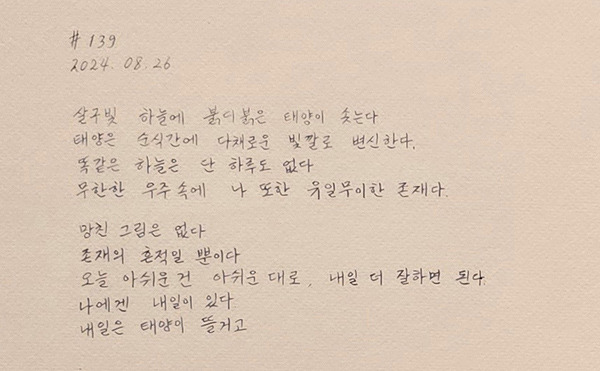 # 139
2024. 08. 26
살구빛 하늘에 붉디붉은 태양이 솟는다
태양은 순식간에 다채로운 빛깔로 변신한다.
똑같은 하늘은 단 하루도 없다
무한한 우주 속에 나 또한 유일무이한 존재다.
망친 그림은 없다
존재의 흔적일 뿐이다
오늘 아쉬운 건 아쉬운 대로, 내일 더 잘하면 된다.
나에겐 내일이 있다
내일은 태양이 뜰거고